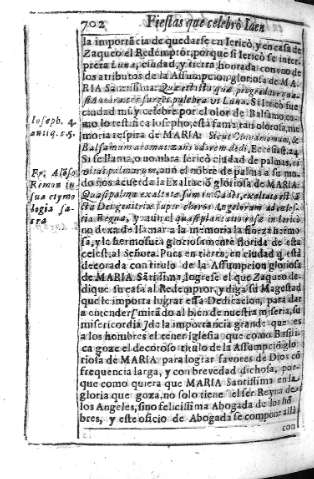 702 Fiestas que celebrò Iaen
la importãcia de quedarse en Iericò, y en casa de
Zaqueo el Redẽptor, porque si Iericò se inter-
preta Luna, ciudad, y tierra honrada con vno de
los atributos de la Assumpcion gloriosa de MA-
RIA Santissima: Quæ est ista quæ progreditur qua-
si Aurora consurgens pulchra vt Luna. Si Iericò fue
ciudad muy celebre por el olor de Balsamo, co-
mo lo testifica Iosepho, està fama tan olorosa, me-
moria respira de MARIA: Sicut Cinamomum, &
Balsamum aromatizans odorem dedi, Ecclesiast. 24.
Si se llama, o nombra Iericò ciudad de palmas,
aun el nõbre de palma a su mo-
do nos acuerda la Exaltaciõ gloriosa de MARIA:
Quasi palma exaltata sum in Cades, exaltata est Sã-
cta Dei genitrix super choros Angelorum ad cæles-
tia Regna, y aun el quasi plantatio rosæ in Ierico
no dexa de llamar a la memoria la flor ẽ hermo-
sa, y le hermosura gloriosamente florida de esta
celestial Señora. Pues en tierra, en ciudad q̃ està
decorada con titulo de la Assumpcion gloriosa
de MARIA Sãtissima, logrese el que Zaqueo de-
dique su casa al Redemptor, y diga su Magestad
que le importa lograr essa Dedicacion, para dar
a entender mirãdo al bien de nuestra miseria, su
misericordia, de la importancia grande que es
a los hombres el tener Iglesia que como Basili-
ca goze el decoroso titulo de la Assumpciõ glo-
riosa de MARIA para lograr favores de Dios cõ
frequencia larga, y con brevedad dichosa, por-
que como quiera que MARIA Santissima en la
gloria que goza, no solo tiene el ser Reyna de
los Angeles, sino felicissima Abogada de los hõ-
bres, y este oficio de Abogada se compone alla
con
Ioseph. 4.
antiq. c. 5.
Fr. Alõso
Remon in
sua etymo
logia sa-
cra